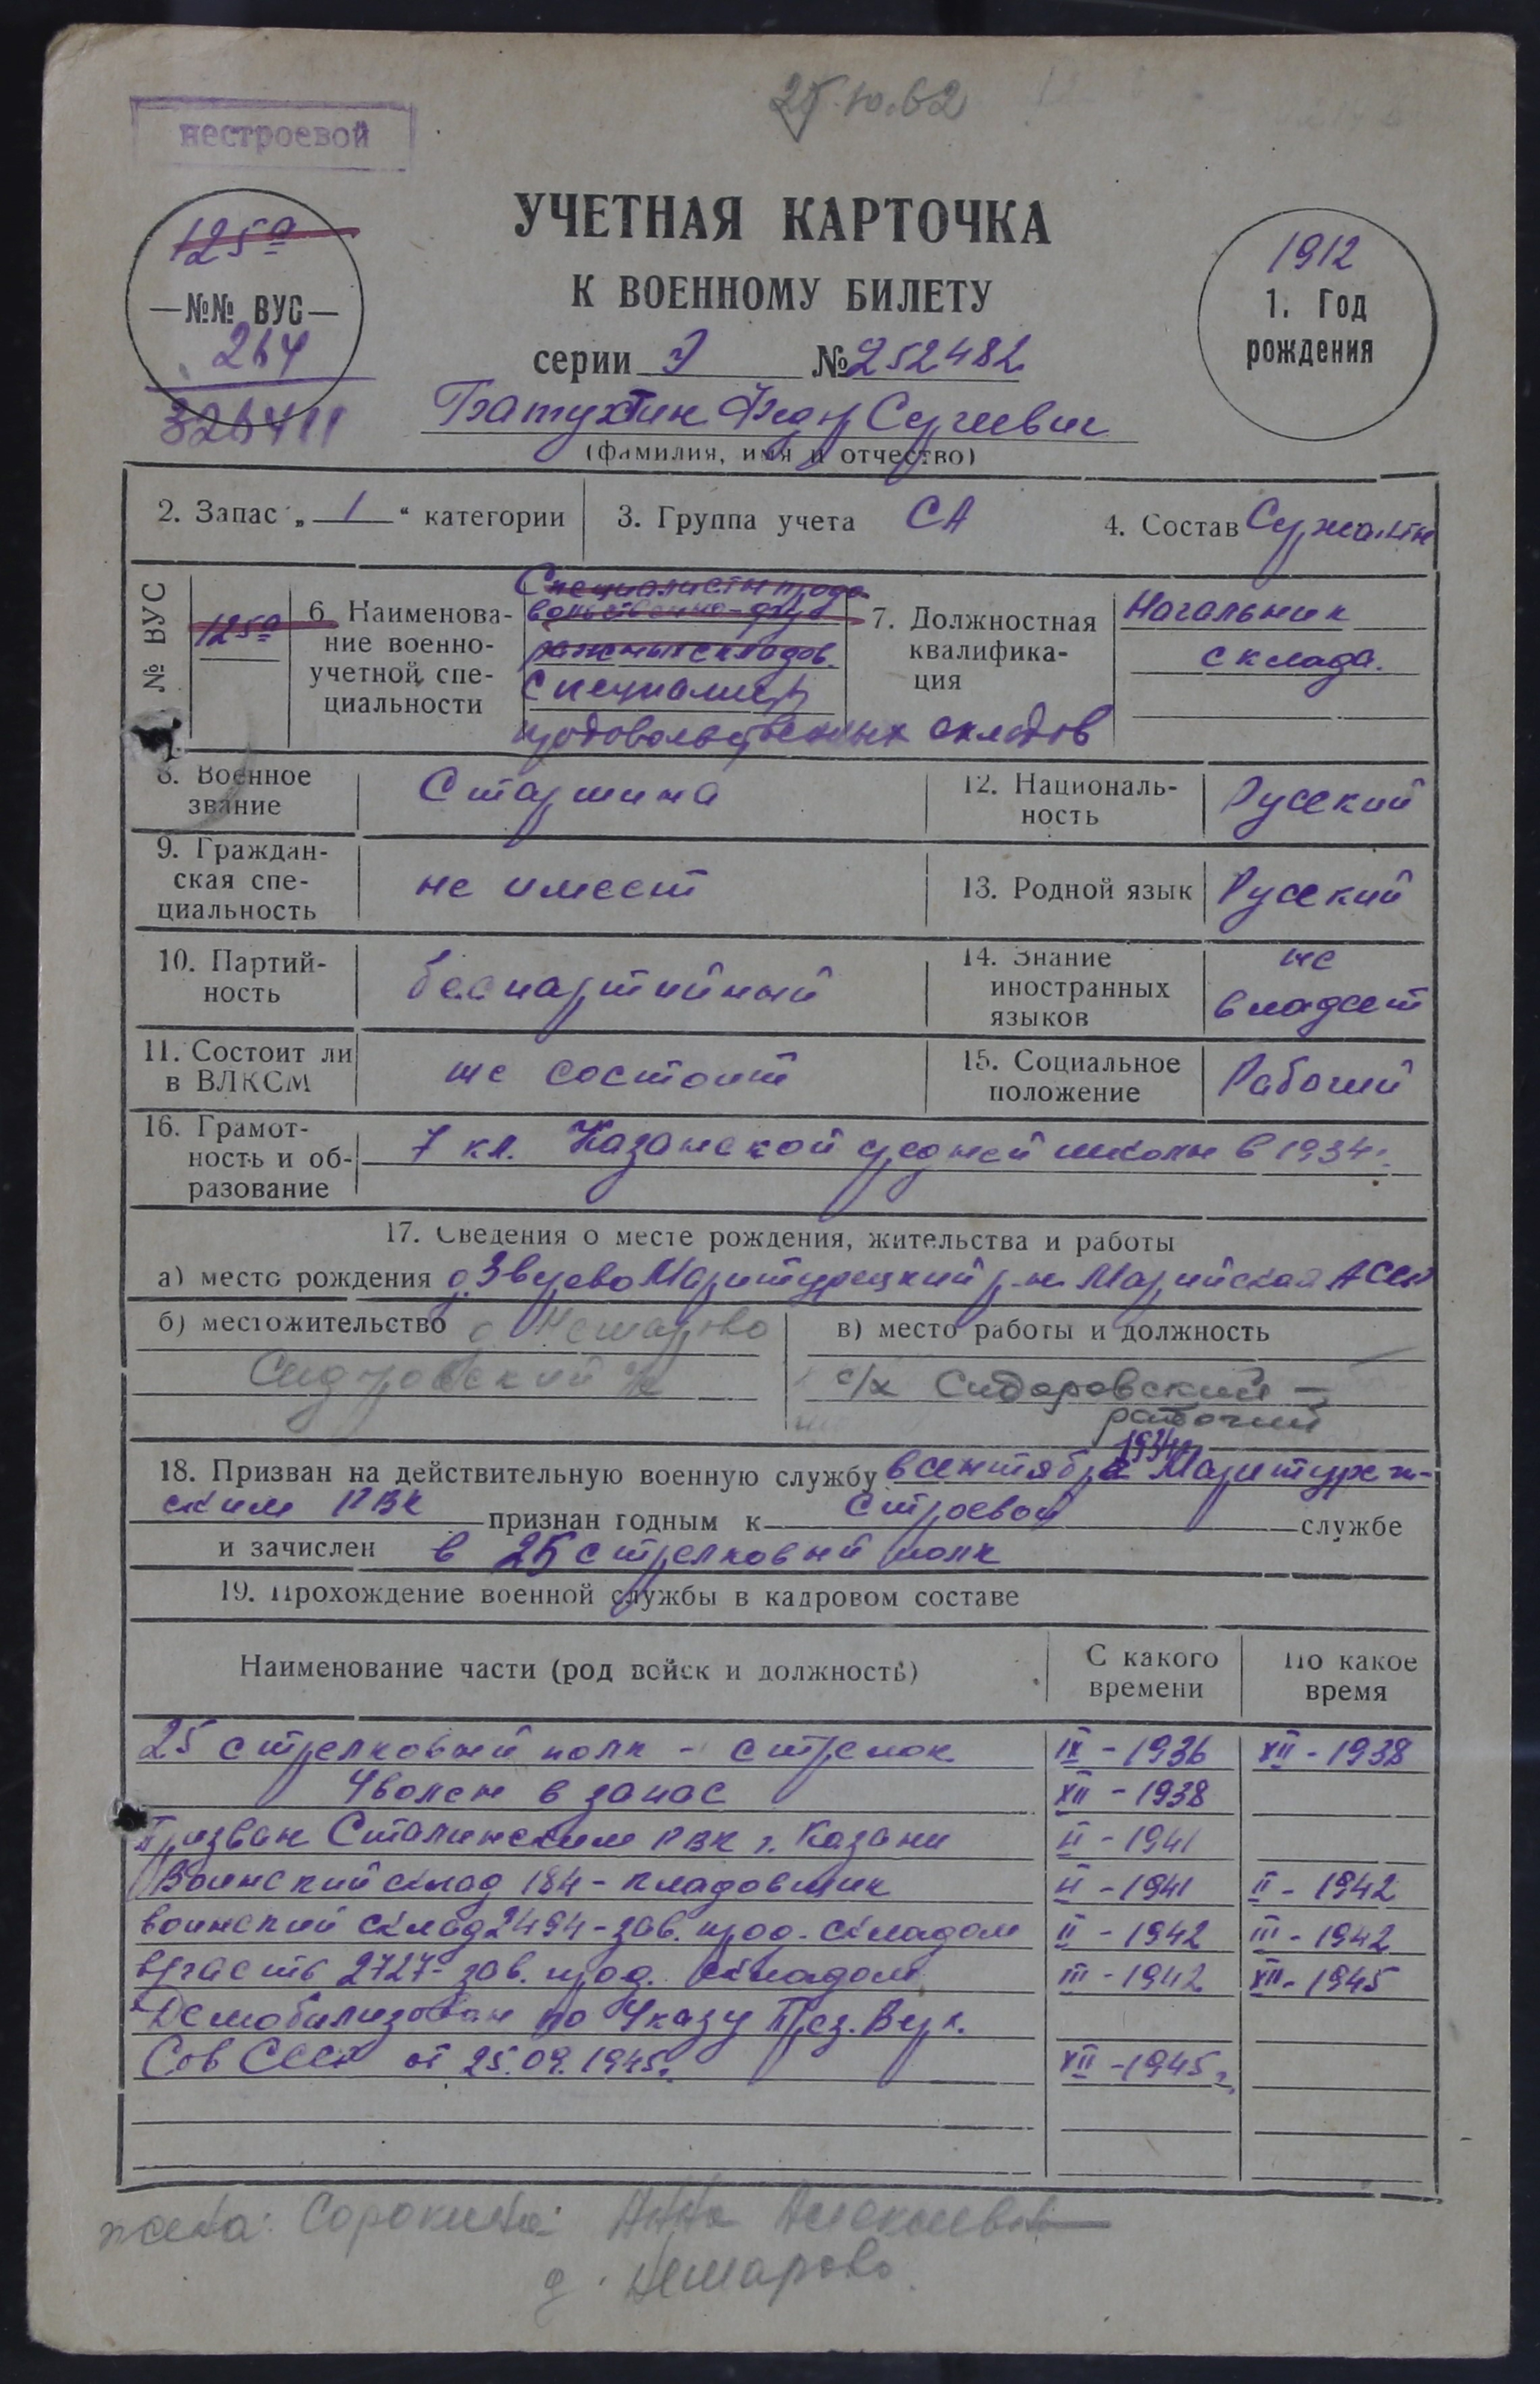 25.10.62
нестроевой
УЧЕТНАЯ КАРТОЧКА
К ВОЕННОМУ БИЛЕТУ
125а
—№№ ВУС—
264
326411
1912
1. Год
рождения
серии № 252482
Батухтин Федор Сергеевич
(фамилия, имя и отчество)
2. Запас „ 1 “ категории 3. Группа учета СА 4. Состав Сержантн
№ ВУС 125а
6. Наименова-
ние военно-
учетной спе-
циальности
Специалисты продо
вольственно-фур
ажных складов.
Специалист
продовольственных складов
7. Должностная
квалифика-
ция
Начальник
склада.
8. Военное
звание
Старшина
12. Националь-
ность
Русский
9. Граждан-
ская спе-
циальность
не имеет
13. Родной язык Русский
10. Партий-
ность
беспартийный
14. Знание
иностранных
языков
не
владеет
11. Состоит ли
в ВЛКСМ
не состоит
15. Социальное
положение
Рабочий
16. Грамот-
ность и об-
разование
7 кл. Казанской средней школы в 1934г.
17. Сведения о месте рождения, жительства и работы
а) место рождения д. Зверево Маритурецкий р-н Марийская АССР
б) местожительство
Сидоровский
в) место работы и должность
с/х Сидоровский —
рабочий
18. Призван на действительную военную службу в сентябре Маритурек-
ским РВК признан годным к строевой службе
и зачислен в 25 стрелковый полк
19. Прохождение военной службы в кадровом составе
Наименование части (род войск и должность) С какого времени По какое время
25 стрелковый полк - стрелок IX - 1936 XII - 1938
Уволен в запас XII - 1938
Призван Сталинским РВК г. Казани VI - 1941
Воинский склад 184 - кладовщик VI - 1941 II - 1942
воинский склад 2494 - зав. прод. складом II - 1942 III - 1942
в/часть 2727 - зав. прод. складом III - 1942 XII - 1945
Демобилизован по Указу През. Верх.
Сов СССР от 25.09.1945г. XII - 1945г.
жена: Сорокина Анна Алексеевна